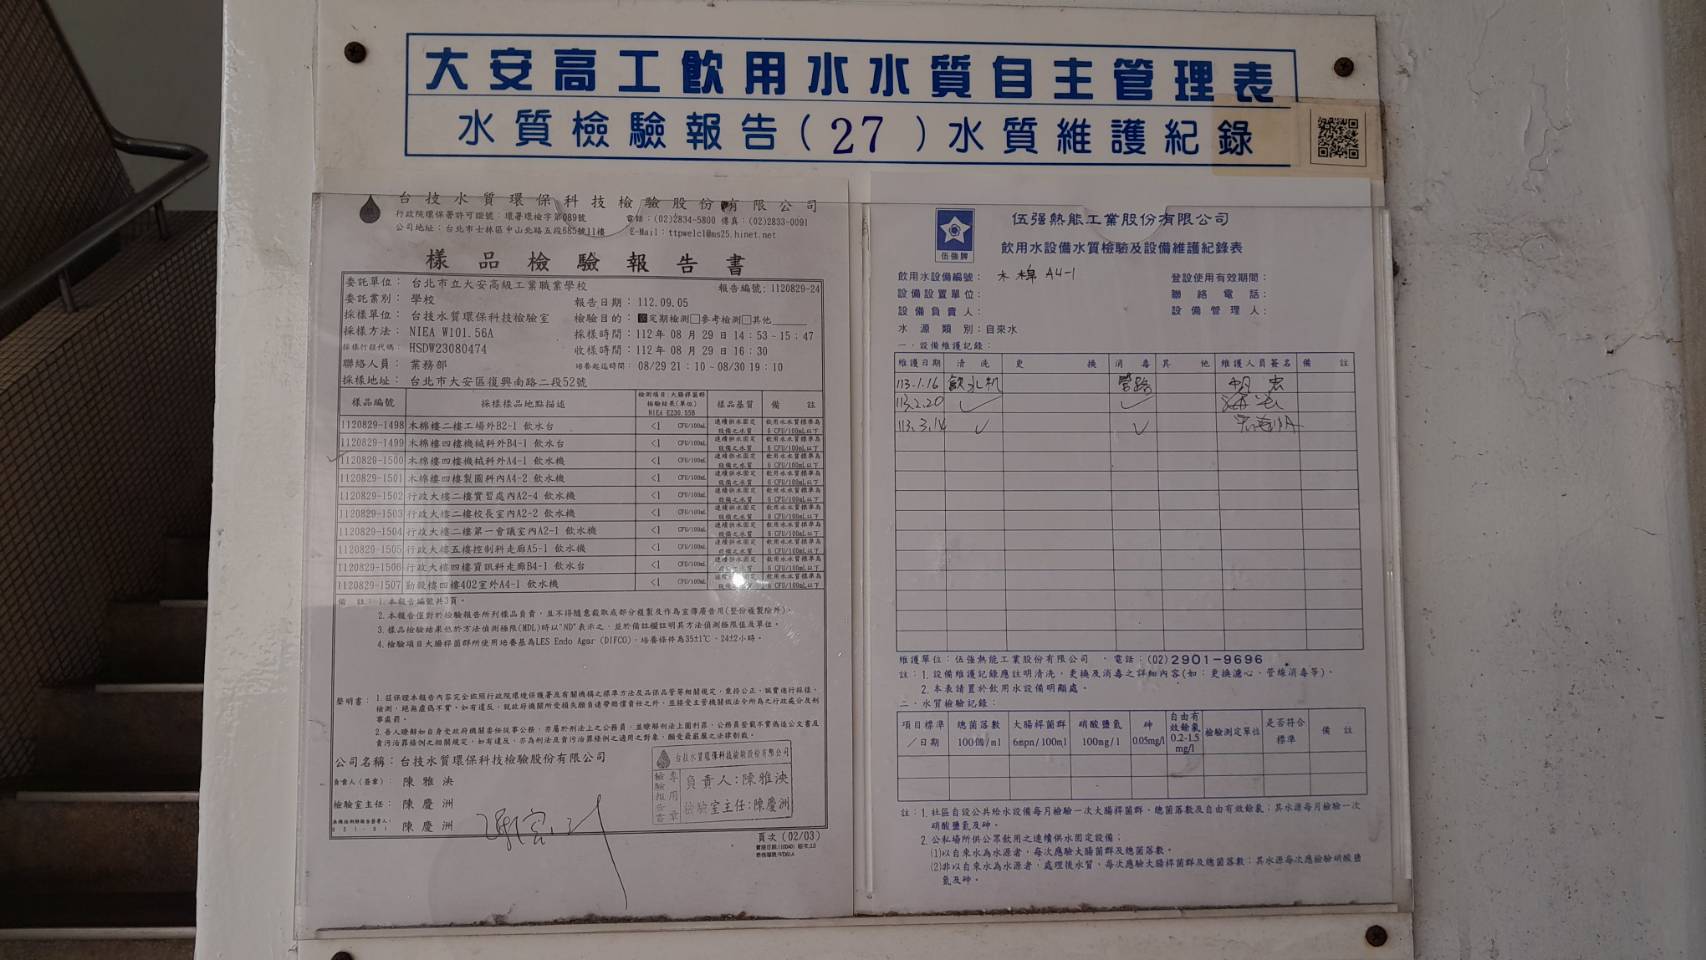 大安高工飲用水水質自主管理表
水質檢驗報告(27)水質維護紀錄
台技水質環保科技檢驗股份有限公司
行政院環保署許可證號：環署環檢字第089號 電話：(02)2834-5800 傳真：(02)2833-0091
公司地址：台北市士林區中山北路五段685號11樓 E-Mail：ttpwelcl@ms25.hinet.net
樣品檢驗報告書
委託單位：台北市立大安高級工業職業學校 報告編號：1120829-24
委託業別：學校 報告日期：112.09.05
採樣單位：台技水質環保科技檢驗室 檢驗目的：定期檢測□參考檢測□其他
採樣方法：NIEA W101.56A 採樣時間：112年08月29日14：53-15：47
採樣行程代碼：HSDW23080474 收樣時間：112年08月29日16：30
聯絡人員：業務部 培養起迄時間：08/29 21：10-08/30 19：10
採樣地址：台北市大安區復興南路二段52號
樣品編號 採樣樣品地點描述 檢測項目：大腸桿菌群 檢驗結果(單位) NIEA E230.55B 樣品基質 備註
1120829-1498 木棉樓二樓工場外B2-1 飲水台 <1 CFU/100mL
1120829-1499 木棉樓四樓機械科外B4-1 飲水台 <1 CFU/100mL
1120829-1500 木棉樓四樓機械科外A4-1 飲水機 <1 CFU/100mL
1120829-1501 木棉樓四樓製圖科內A4-2 飲水機 <1 CFU/100mL
1120829-1502 行政大樓二樓實習處內A2-4 飲水機 <1 CFU/100mL
1120829-1503 行政大樓二樓校長室內A2-2 飲水機 <1 CFU/100mL
1120829-1504 行政大樓二樓第一會議室內A2-1 飲水機 <1 CFU/100mL
1120829-1505 行政大樓五樓控制科走廊A5-1 飲水機 <1 CFU/100mL
1120829-1506 行政大樓四樓資訊科走廊B4-1 飲水台 <1 CFU/100mL
1120829-1507 勤毅樓四樓402室外A4-1 飲水機 <1 CFU/100mL
備註：1.本報告編號共3頁。
2.本報告僅對於檢驗報告所列樣品負責，且不得隨意截取底部分複製及作為宣傳廣告用(整份複製除外)。
3.樣品檢驗結果低於方法偵測極限(MDL)時以"ND"表示之，並於備註欄註明其方法偵測極限值及單位。
4.檢驗項目大腸桿菌群所使用培養基為LES Endo Agar (DIFCO)，培養條件為35±1℃，24±2小時。
聲明書：1.茲保證本報告內容完全依照行政院環境保護署及有關機構之標準方法及品保品管等相關規定，秉持公正、誠實進行採樣、
檢測，絕無虛偽不實，如有違反，就政府機關所受損失願負連帶賠償責任之外，並接受主管機關依法令所為之行政處分及刑
事處罰。
2.吾人瞭解如自身受政府機關委任從事公務，亦屬於刑法上之公務員，並瞭解刑法上圖利罪、公務員登載不實偽造公文書及
貪污治罪條例之相關規定，如有違反，亦為刑法及貪污治罪條例之適用之對象，願受最嚴厲之法律制裁。
公司名稱：台技水質環保科技檢驗股份有限公司
負責人(簽章)：陳雅泱
檢驗室主任：陳慶洲
陳慶洲
台技水質環保科技檢驗股份有限公司
檢驗報告專用章
負責人：陳雅泱
檢驗室主任：陳慶洲
頁次(02/03)
伍強牌
伍强熱能工業股份有限公司
飲用水設備水質檢驗及設備維護紀錄表
飲用水設備編號：木棉 A4-1 登設使用有效期間：
設備設置單位： 聯絡電話：
設備負責人： 設備管理人：
水源類別：自來水
一、設備維護記錄：
維護日期 清洗 更換 消毒 其他 維護人員簽名 備註
113.1.16 飲水机 管路
113.2.20 ✓ ✓
113.3.14 ✓ ✓
維護單位：伍強熱能工業股份有限公司 ・電話：(02)2901-9696
註：1.設備維護記錄應註明清洗、更換及消毒之詳細內容(如：更換濾心、管線消毒等)。
2.本表請置於飲用水設備明顯處。
二、水質檢驗記錄：
項目標準／日期 總菌落數 100個/ml 大腸桿菌群 6mpn/100ml 硝酸鹽氮 100mg/l 砷 0.05mg/l 自由有效餘氯 0.2-1.5 mg/l 檢驗測定單位 是否符合標準 備註
註：1.社區自設公共給水設備每月檢驗一次大腸桿菌群、總菌落數及自由有效餘氯；其水源每月檢驗一次
硝酸鹽氮及砷。
2.公私場所供公眾飲用之連續供水固定設備；
(1)以自來水為水源者，每次應驗大腸菌群及總菌落數。
(2)非以自來水為水源者，處理後水質，每次應驗大腸桿菌群及總菌落數；其水源每次應檢驗硝酸鹽
氮及砷。